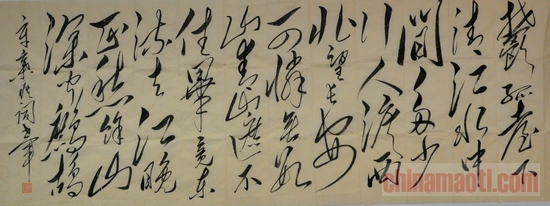 鬱孤臺下
清江水中
間多少
行人淚西
北望長安
可憐無數
山青山遮不
住畢竟東
流去江晚
正愁餘山
深聞鷓鴣
辛棄疾詞
chinamaoti.com